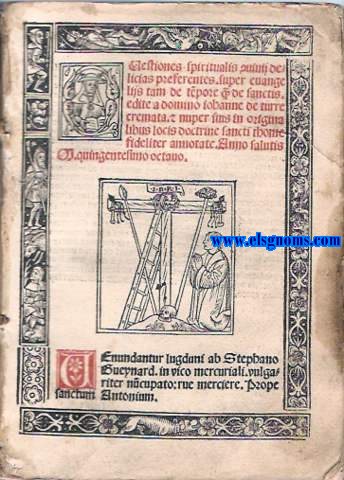 Questiones spiritualis conuiuij de
licias preferentes. super euange
lijs tam de tēpore q̄ de sanctis.
edite a domino iohanne de turre
cremata. ⁊ nuper suis in origina
libus locis doctrine sancti thome
fideliter annotate. Anno salutis
M. quingentesimo octauo.
I·N·R·I
www.elsgnoms.com
UEnundantur lugduni ab Stephano
Gueynard. in vico mercuriali. vulga
riter nūcupato: rue merciere. Prope
sanctum Antonium.